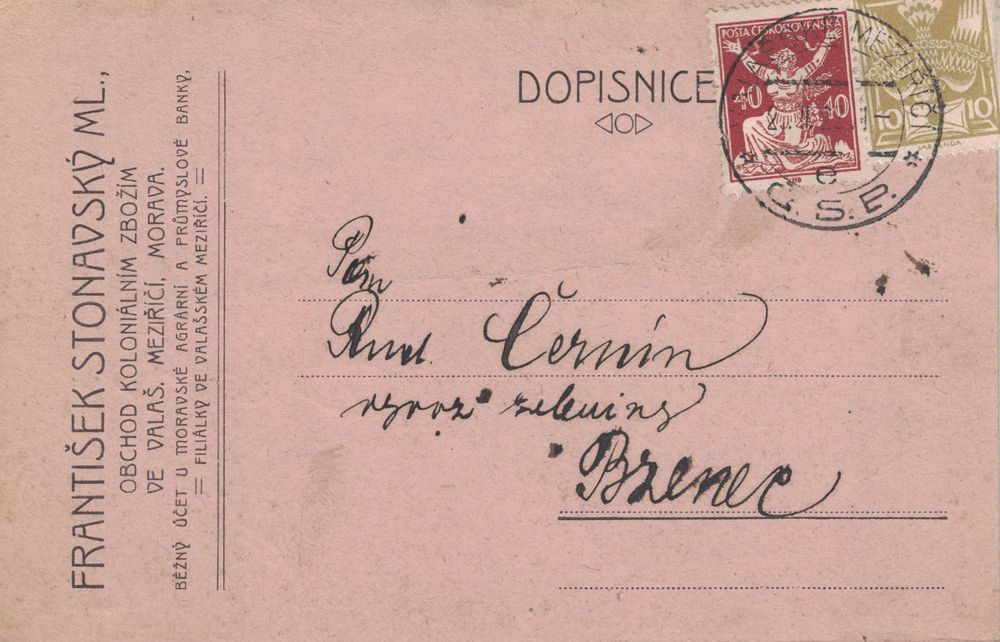 FRANTIŠEK STONAVSKÝ ML.,
OBCHOD KOLONIÁLNÍM ZBOŽÍM
VE VALAŠ. MEZIŘÍČÍ, MORAVA.
BĚŽNÝ ÚČET U MORAVSKÉ AGRÁRNÍ A PRŮMYSLOVÉ BANKY,
FILIÁLKY VE VALAŠSKÉM MEZIŘÍČÍ.
DOPISNICE
POŠTA ČESKOSLOVENSKÁ
40 40
10
MEZIŘÍČÍ
C
Č.S.P.
Pan
Rud. Černín
vývoz zeleniny
Bzenec